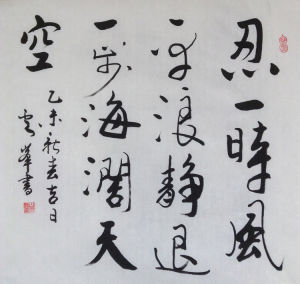 忍一時風
平浪靜退
一步海濶天
空
乙未新春吉日
書